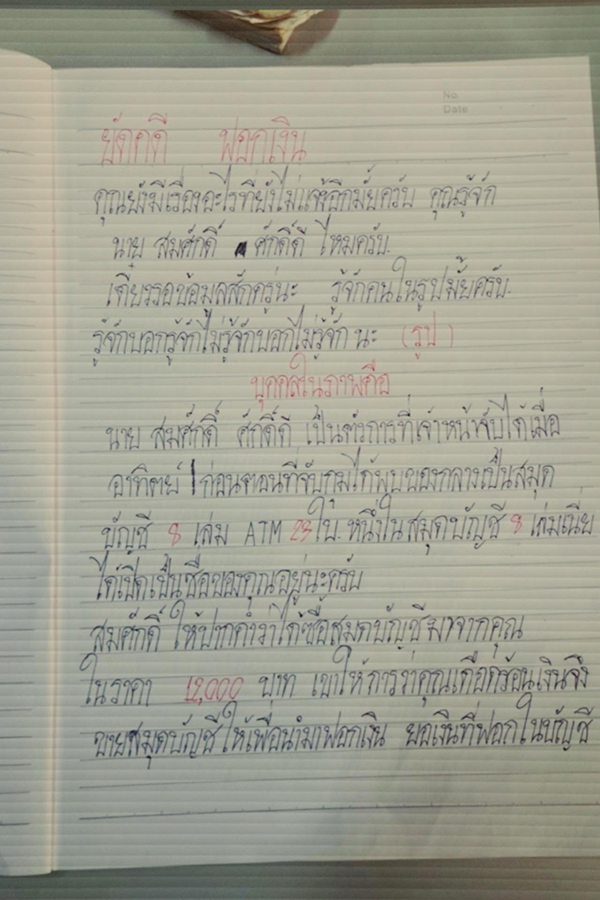 No.
Date
ยัดคดี ฟอกเงิน
คุณยังมีเรื่องอะไรที่ยังไม่แจ้งอีกมั้ยครับ คุณรู้จัก
นาย สมศักดิ์ ศักดิ์ดี ไหมครับ.
เดี๋ยวรอข้อมูลสักครู่นะ รู้จักคนในรูปมั้ยครับ.
รู้จักบอกรู้จักไม่รู้จักบอกไม่รู้จัก นะ (รูป)
บุคคลในภาพคือ
นาย สมศักดิ์ ศักดิ์ดี เป็นตัวการที่เจ้าหน้าจับได้เมื่อ
อาทิตย์ ก่อนตอนที่จับกุมได้พบของกลางเป็นสมุด
บัญชี 8 เล่ม ATM 23 ใบ. หนึ่งในสมุดบัญชี 8 เล่มเนี่ย
ได้เปิดเป็นชื่อของคุณอยู่นะครับ
สมศักดิ์ ให้ปากคำว่าได้ซื้อสมุดบัญชีมาจากคุณ
ในราคา 12,000 บาท เขาให้การว่าคุณเดือดร้อนเงินจึง
ขายสมุดบัญชีให้เพื่อนำมาฟอกเงิน ยอเงินที่ฟอกในบัญชี